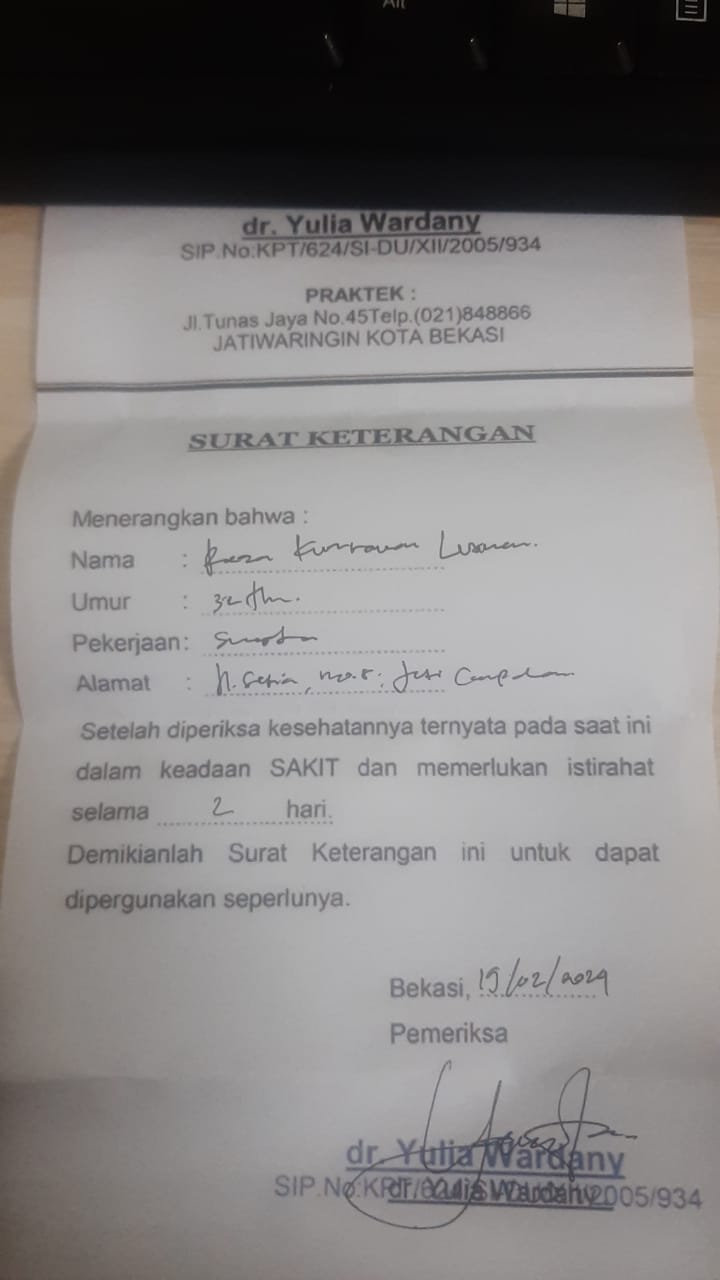 Alt
dr. Yulia Wardany
SIP.No:KPT/624/SI-DU/XII/2005/934
PRAKTEK :
Jl.Tunas Jaya No.45Telp.(021)848866
JATIWARINGIN KOTA BEKASI
SURAT KETERANGAN
Menerangkan bahwa :
Nama :
Umur : 32 thn.
Pekerjaan: Swasta
Alamat :
Setelah diperiksa kesehatannya ternyata pada saat ini
dalam keadaan SAKIT dan memerlukan istirahat
selama 2 hari.
Demikianlah Surat Keterangan ini untuk dapat
dipergunakan seperlunya.
Bekasi, 19/02/2024
Pemeriksa
dr. Yulia Wardany
SIP.No.KPT/624/SI-DU/XII/2005/934
dr. Yulia Wardany